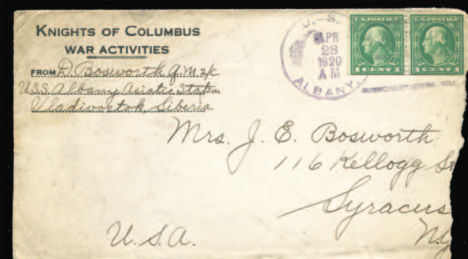 KNIGHTS OF COLUMBUS
WAR ACTIVITIES
FROM D. Bosworth Q.M. 2/c
U.S.S. Albany, Asiatic Station
Vladivostok, Siberia
U. S.
APR
28
1920
AM
ALBANY.
U.S. POSTAGE
1 CENT 1
U.S. POSTAGE
1 CENT 1
Mrs. J. E. Bosworth
116 Kellogg St
Syracus
N.Y
U.S.A.